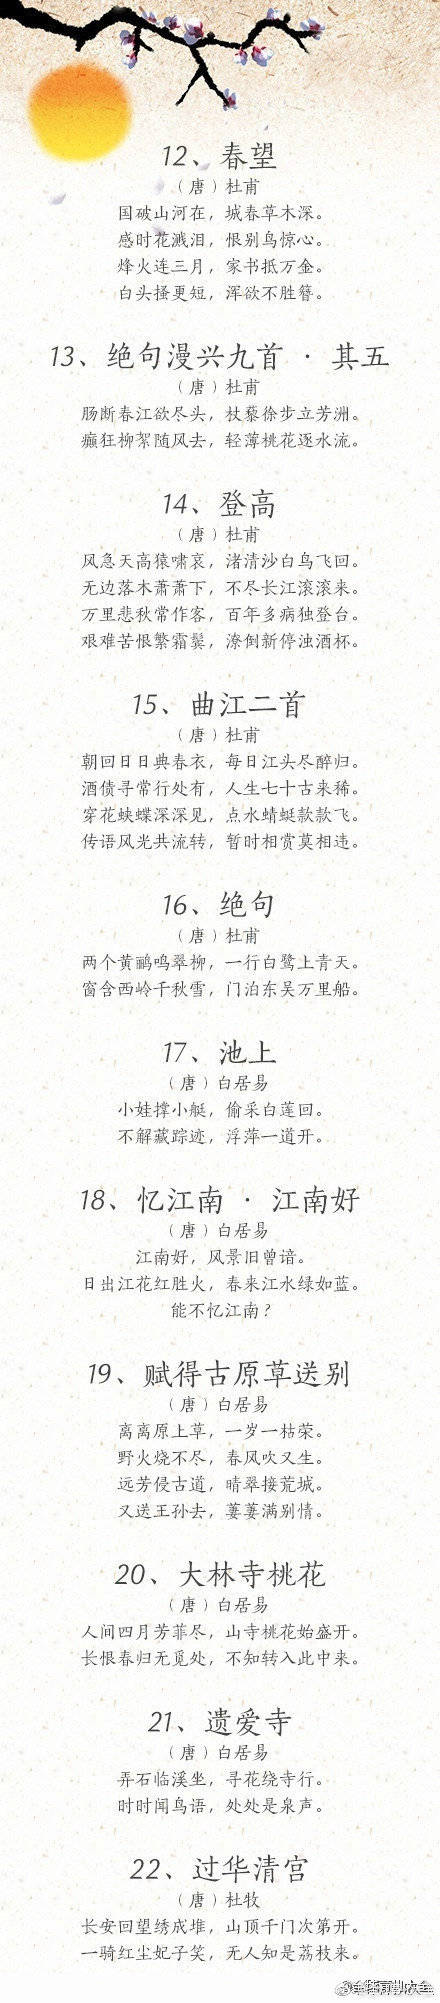 12、春望
（唐）杜甫
国破山河在，城春草木深。
感时花溅泪，恨别鸟惊心。
烽火连三月，家书抵万金。
白头搔更短，浑欲不胜簪。
13、绝句漫兴九首 · 其五
（唐）杜甫
肠断春江欲尽头，杖藜徐步立芳洲。
癫狂柳絮随风去，轻薄桃花逐水流。
14、登高
（唐）杜甫
风急天高猿啸哀，渚清沙白鸟飞回。
无边落木萧萧下，不尽长江滚滚来。
万里悲秋常作客，百年多病独登台。
艰难苦恨繁霜鬓，潦倒新停浊酒杯。
15、曲江二首
（唐）杜甫
朝回日日典春衣，每日江头尽醉归。
酒债寻常行处有，人生七十古来稀。
穿花蛱蝶深深见，点水蜻蜓款款飞。
传语风光共流转，暂时相赏莫相违。
16、绝句
（唐）杜甫
两个黄鹂鸣翠柳，一行白鹭上青天。
窗含西岭千秋雪，门泊东吴万里船。
17、池上
（唐）白居易
小娃撑小艇，偷采白莲回。
不解藏踪迹，浮萍一道开。
18、忆江南 · 江南好
（唐）白居易
江南好，风景旧曾谙。
日出江花红胜火，春来江水绿如蓝。
能不忆江南？
19、赋得古原草送别
（唐）白居易
离离原上草，一岁一枯荣。
野火烧不尽，春风吹又生。
远芳侵古道，晴翠接荒城。
又送王孙去，萋萋满别情。
20、大林寺桃花
（唐）白居易
人间四月芳菲尽，山寺桃花始盛开。
长恨春归无觅处，不知转入此中来。
21、遗爱寺
（唐）白居易
弄石临溪坐，寻花绕寺行。
时时闻鸟语，处处是泉声。
22、过华清宫
（唐）杜牧
长安回望绣成堆，山顶千门次第开。
一骑红尘妃子笑，无人知是荔枝来。